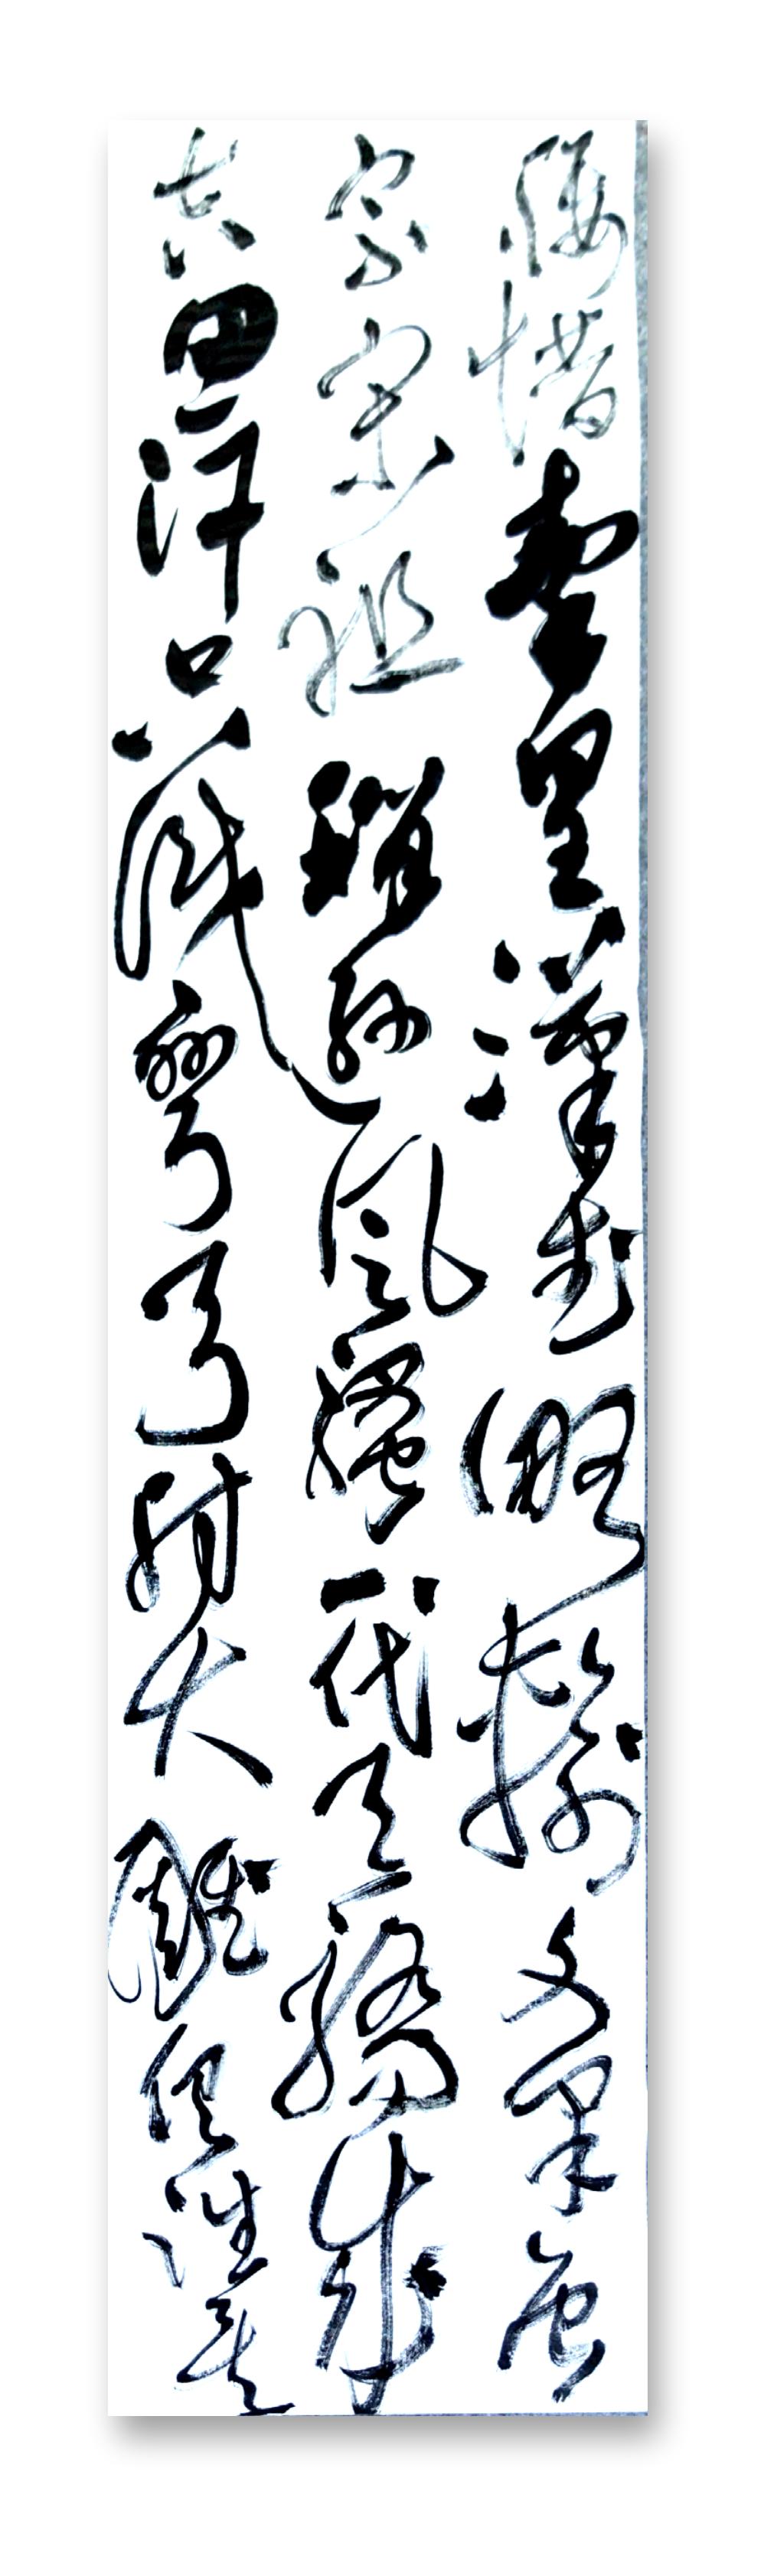 腰惜秦皇漢武略輸文采唐
宗宋祖稍遜風騷一代天驕成
吉思汗只識彎弓射大雕俱往矣